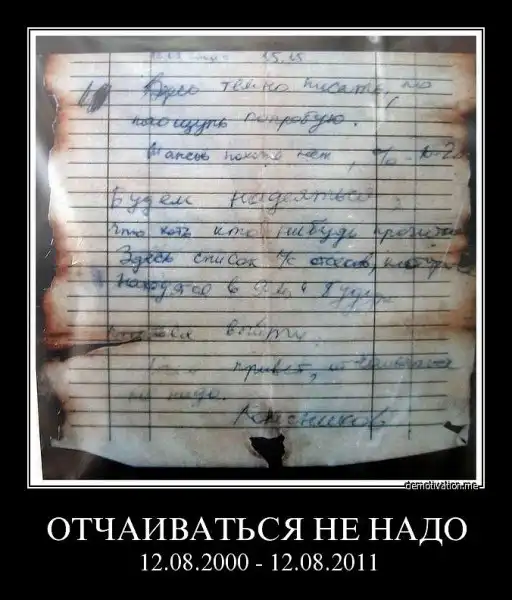 15.15
Здесь темно писать, но
наощупь попробую.
Шансов похоже нет, % 10-20
Будем надеяться,
что хоть кто нибудь прочитает
Здесь список л/с отсеков, которые
находятся в 9-м и будут
выйти.
привет, отчаиваться
не надо.
Колесников
demotivation.me
ОТЧАИВАТЬСЯ НЕ НАДО
12.08.2000 - 12.08.2011